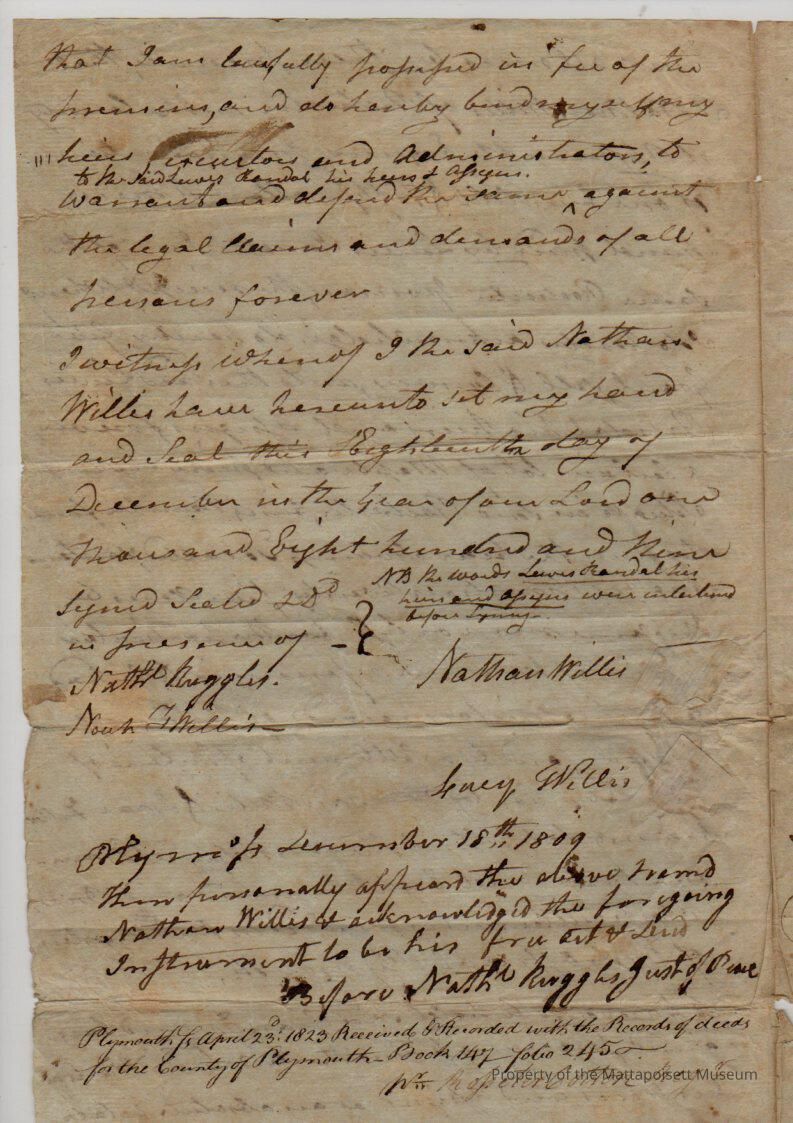 that I am lawfully possessed in fee of the
premises, and do hereby bind myself my
heirs executors and Administrators, to
to the said Lewis Randal his heirs & Assigns.
warrant and defend the same ^ against
the legal Claims and demands of all
persons forever
I witness whereof I the said Nathan
Willis have hereunto set my hand
and Seal this Eighteenth day of
December in the Year of our Lord one
thousand Eight hundred and Nine
NB the words Lewis Randal his
heirs and assigns were interlined
before Signing
Signd Seald & Dd
in presence of
Nathl Ruggles.
Nathan Willis
Noah Willis
Lucy Willis
Plymo ss December 18th 1809
then personally appeard the above namd
Nathan Willis & acknowledged the foregoing
Instrument to be his free act & Deed
Before Nathl Ruggles Just of Peace
Plymouth ss April 23d 1823 Received & Recorded with the Records of deeds
for the County of Plymouth - Book 147 folio 245
pr
Property of the Mattapoisett Museum